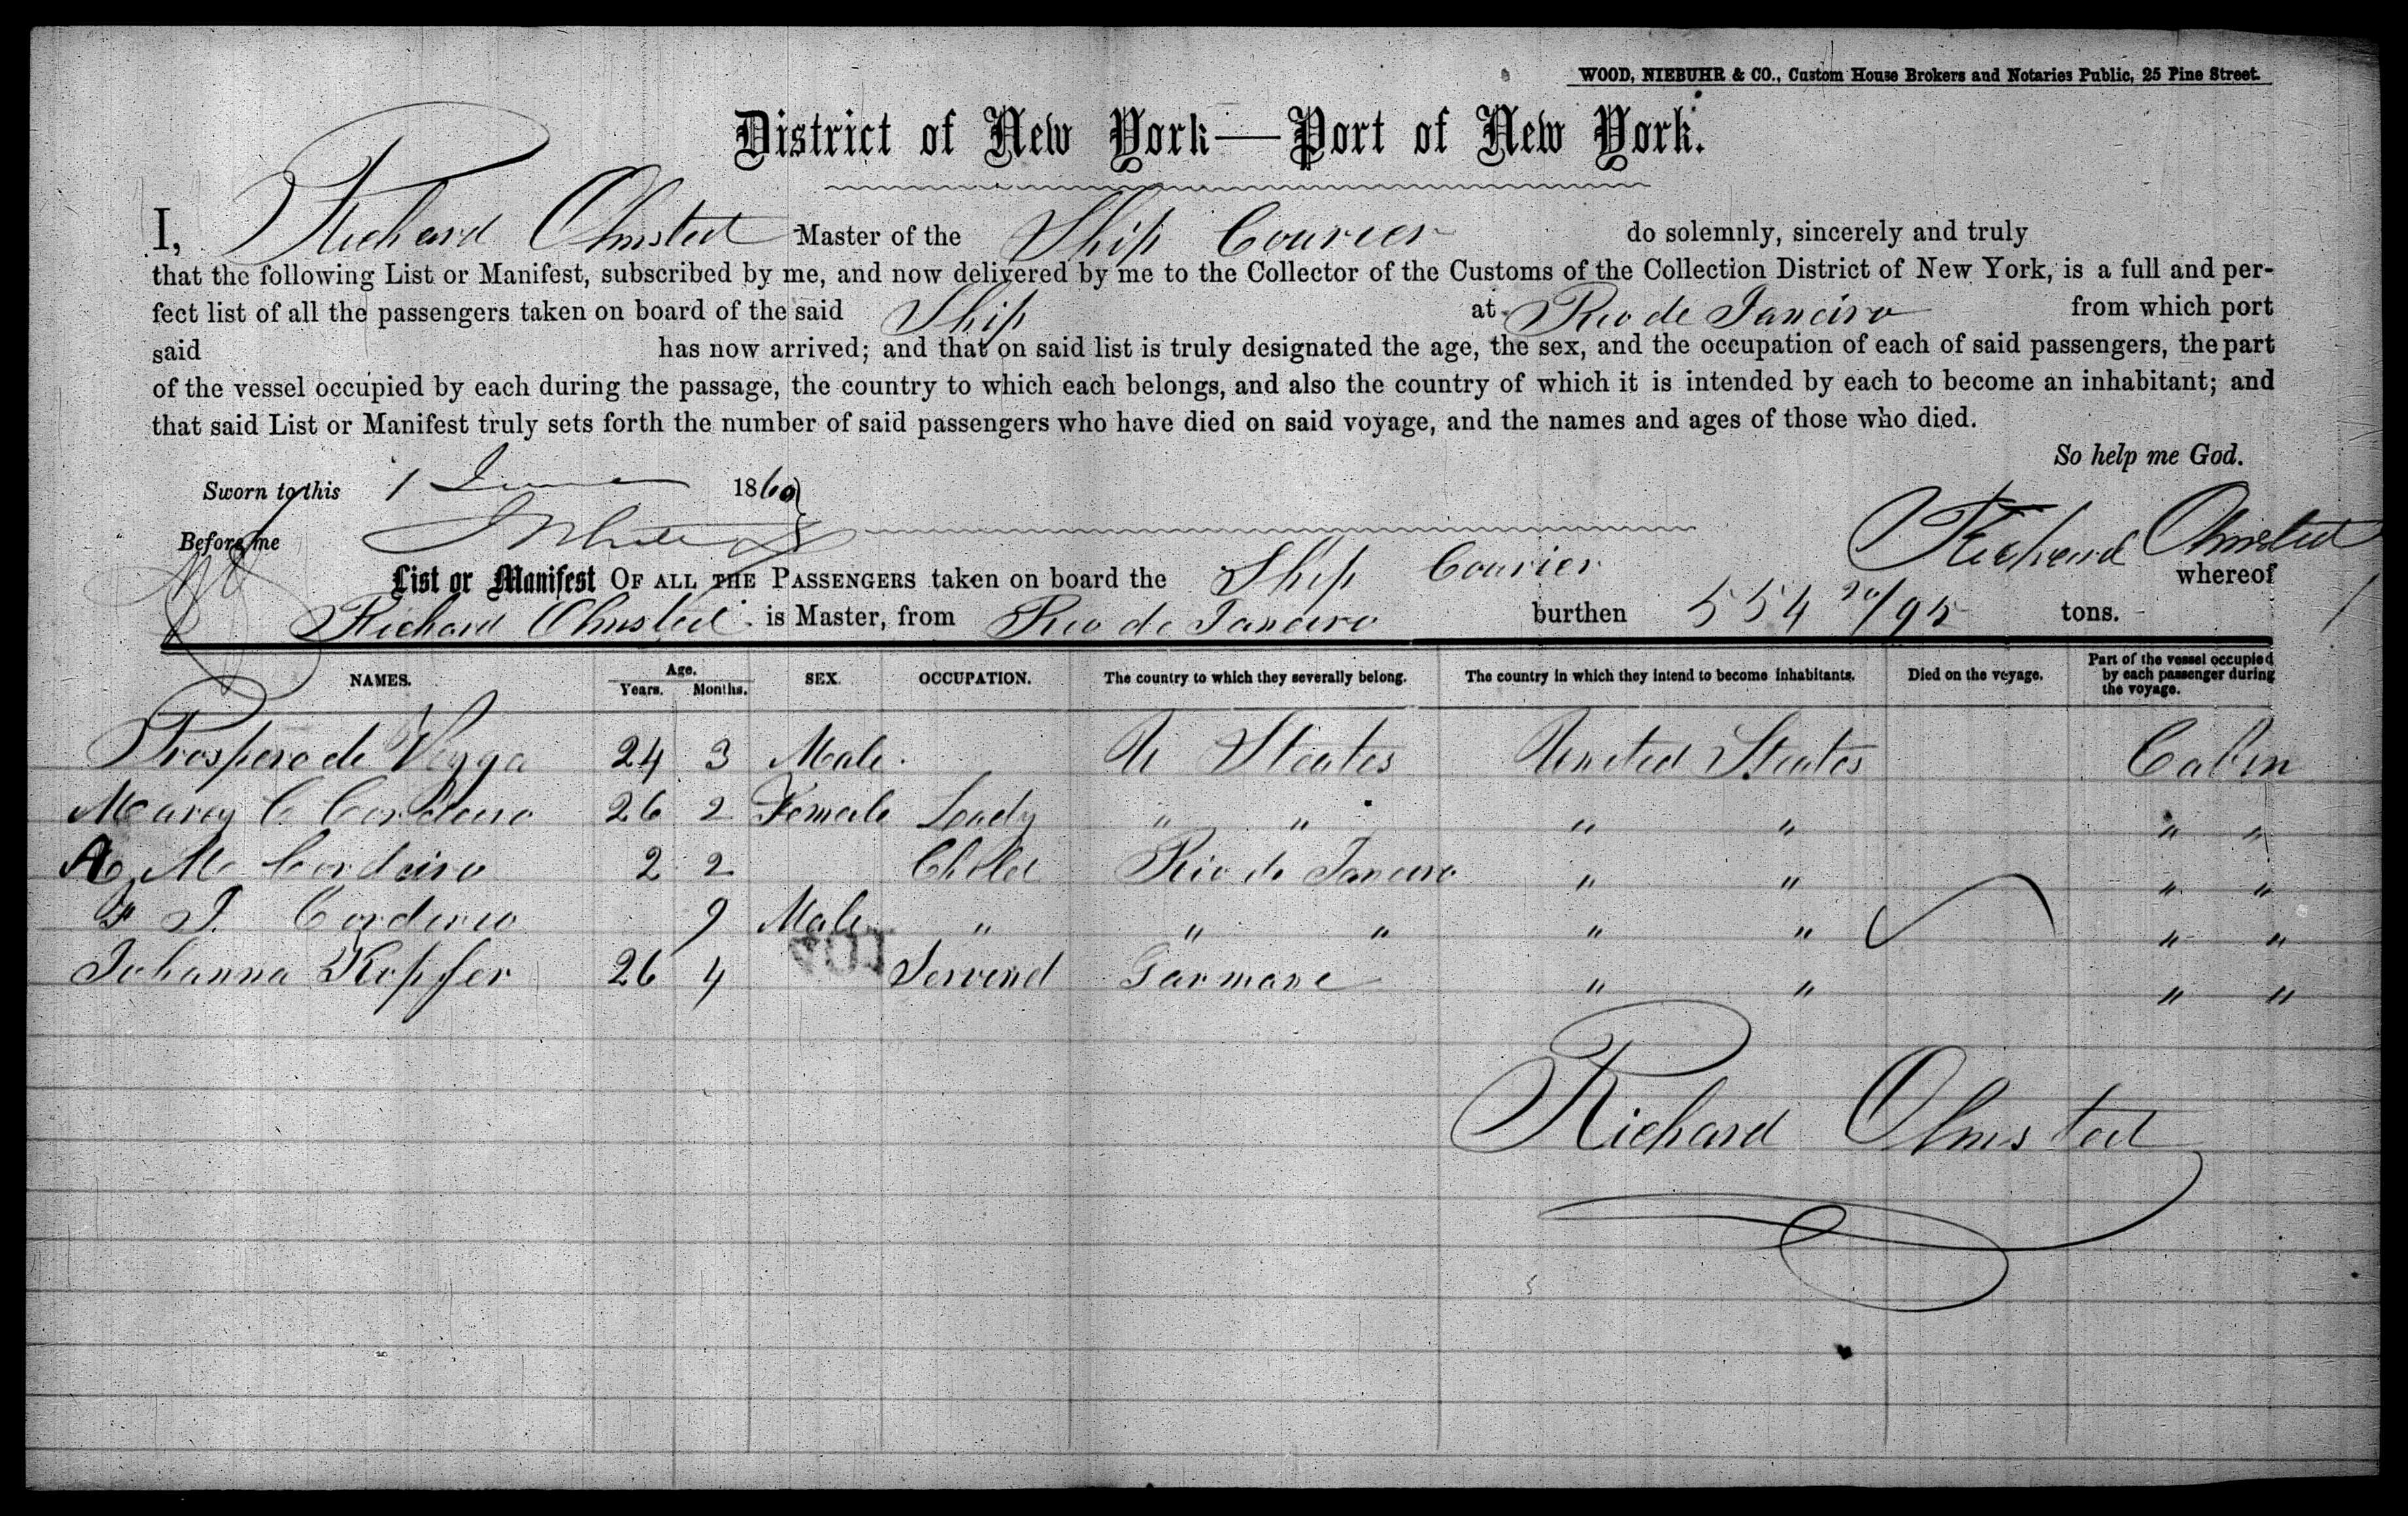 WOOD, NIEBUHR & CO., Custom House Brokers and Notaries Public, 25 Pine Street.
District of New York—Port of New York.
I, Richard Olmsted Master of the Ship Courier do solemnly, sincerely and truly
that the following List or Manifest, subscribed by me, and now delivered by me to the Collector of the Customs of the Collection District of New York, is a full and per-
fect list of all the passengers taken on board of the said Ship at Rio de Janeiro from which port
said has now arrived; and that on said list is truly designated the age, the sex, and the occupation of each of said passengers, the part
of the vessel occupied by each during the passage, the country to which each belongs, and also the country of which it is intended by each to become an inhabitant; and
that said List or Manifest truly sets forth the number of said passengers who have died on said voyage, and the names and ages of those who died.
So help me God.
Sworn to this 1 June 1860
Before me
Richard Olmsted
List or Manifest OF ALL THE PASSENGERS taken on board the Ship Courier whereof
Richard Olmsted is Master, from Rio de Janeiro burthen 554 20/95 tons.
NAMES. Age. Years. Months. SEX. OCCUPATION. The country to which they severally belong. The country in which they intend to become inhabitants. Died on the voyage. Part of the vessel occupied by each passenger during the voyage.
Prospero de Veyga 24 3 Male U States United States Cabin
Marey C Cordeiro 26 2 Female Lady " " " " " "
A M Cordeiro 2 2 Child Rio de Janeiro " " " "
F J. Cordeiro 9 Male " " " " " " "
Johanna Kopfer 26 4 Servend Garmane " " " "
Richard Olmsted